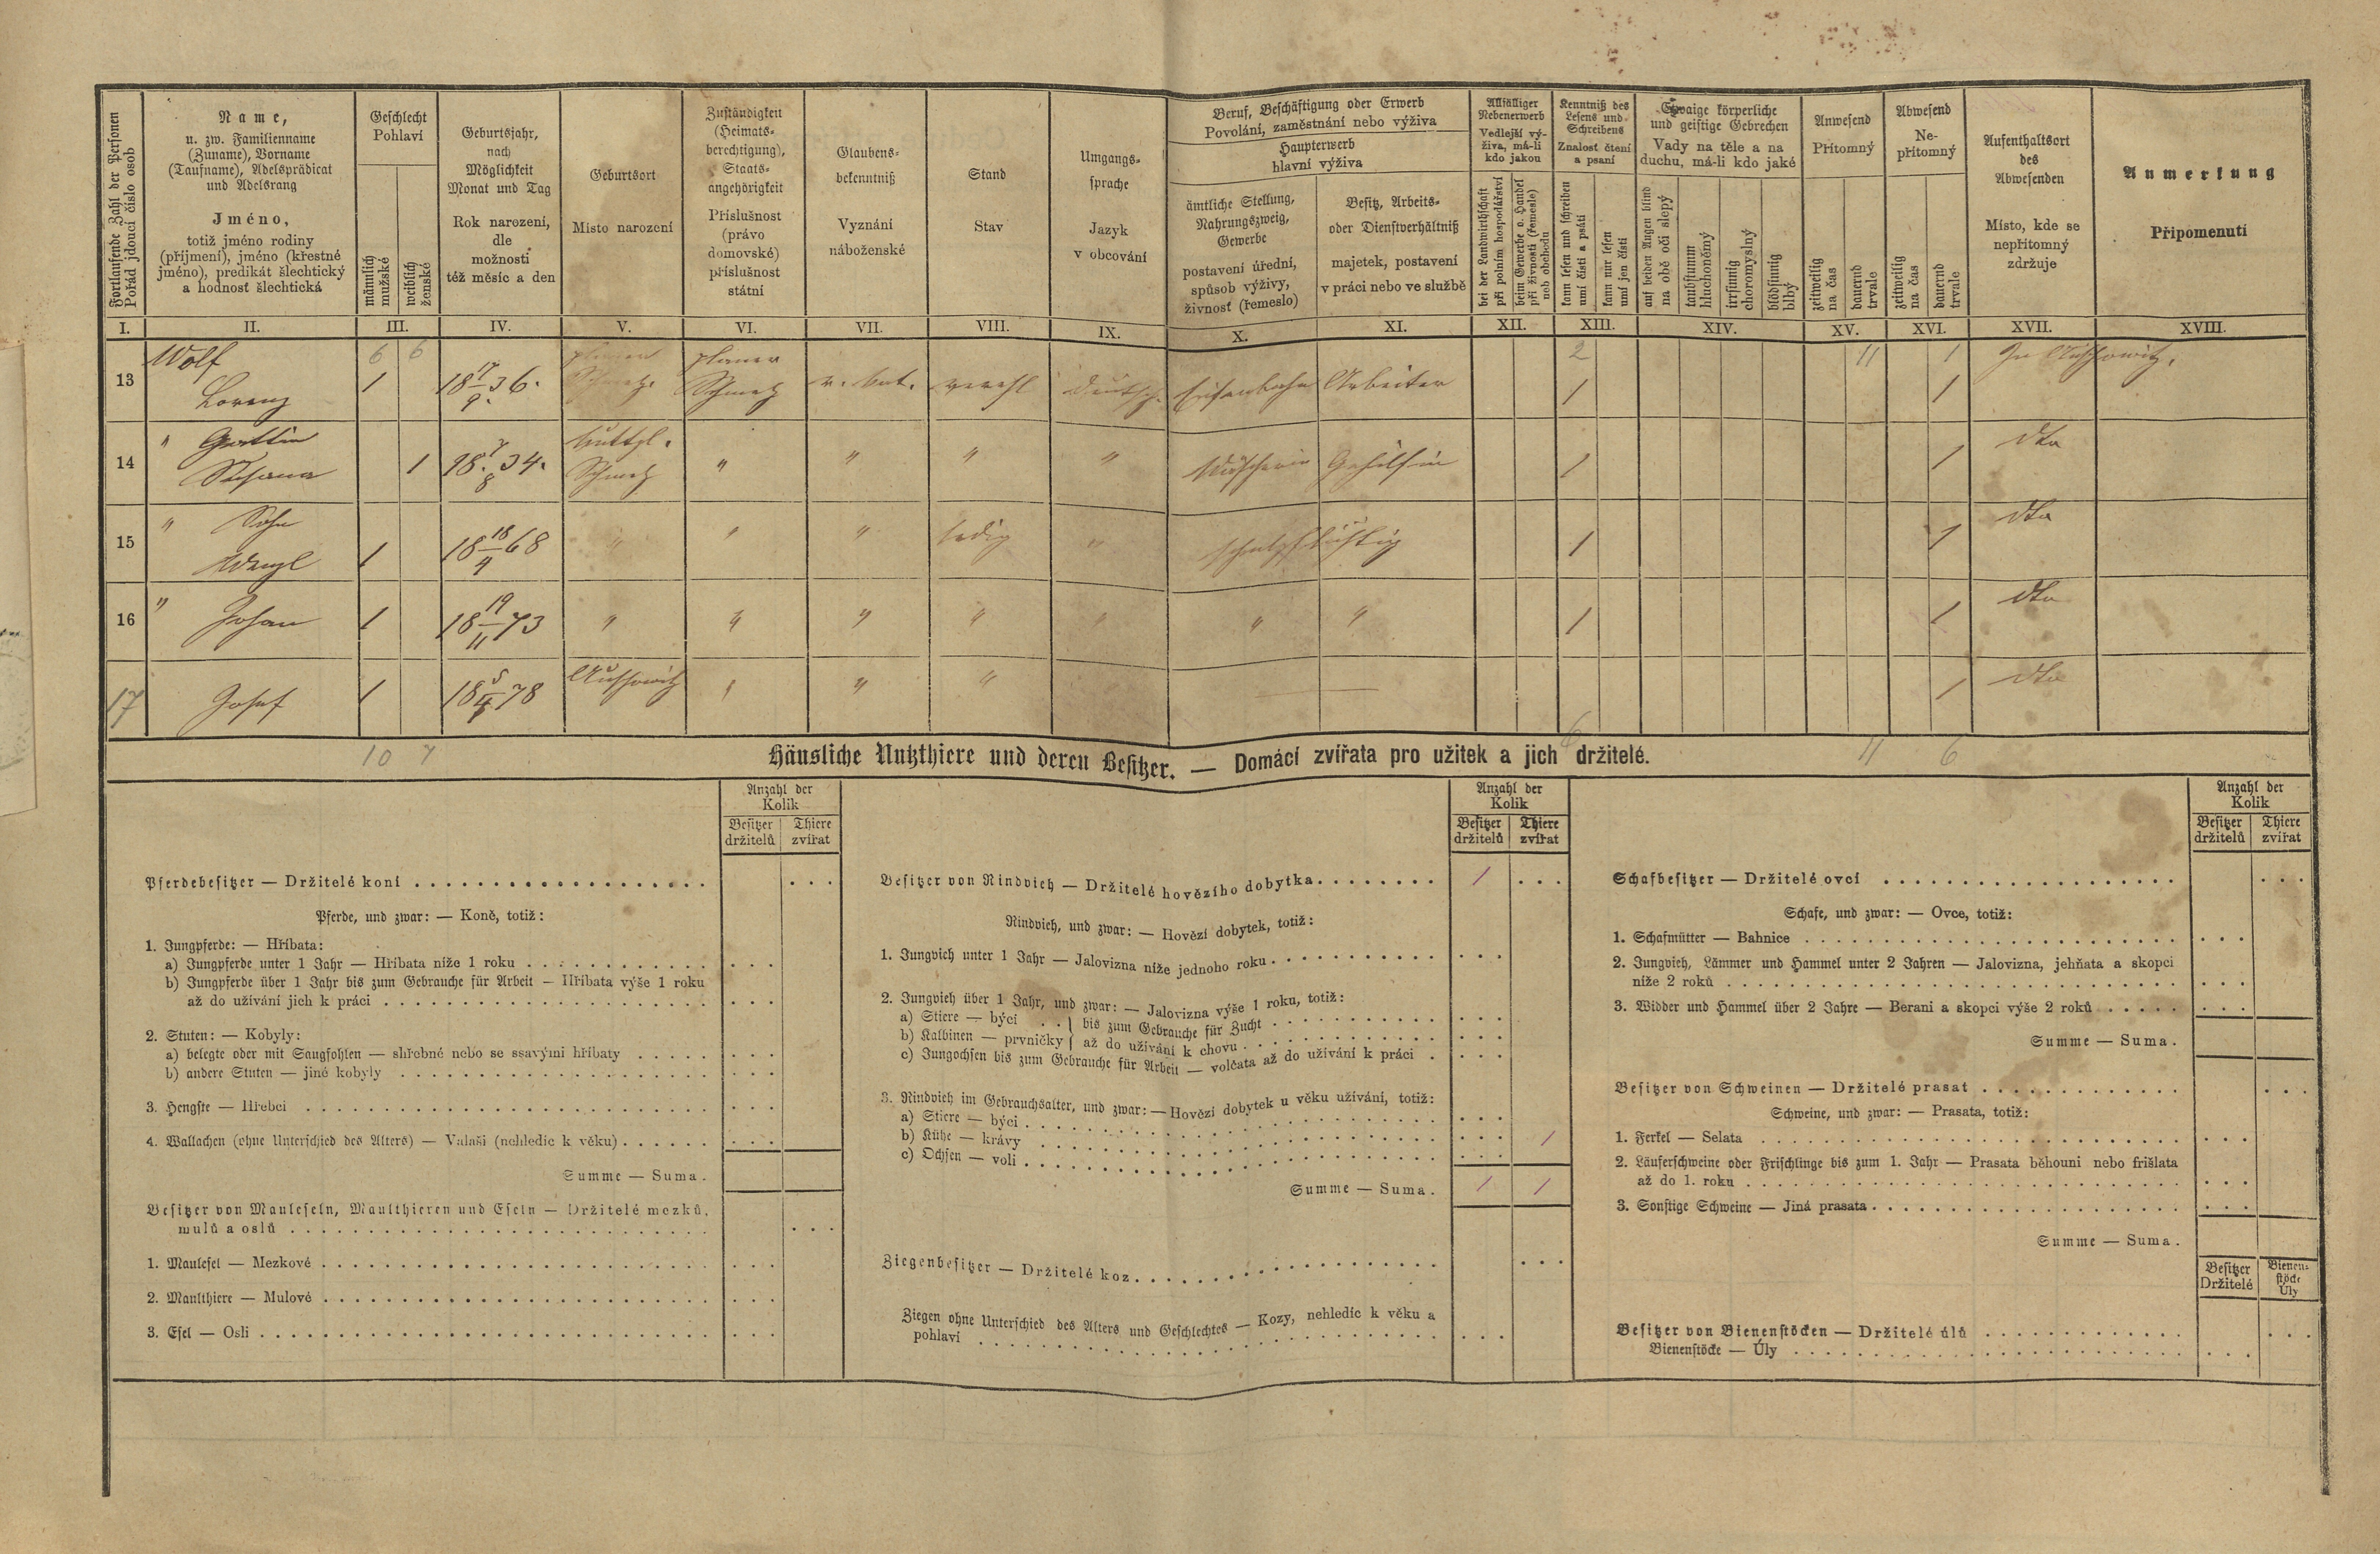 Fortlaufende Zahl der Personen
Pořád jdoucí číslo osob
Name,
u. zw. Familienname
(Zuname), Vorname
(Taufname), Adelsprädicat
und Adelsrang
Jméno,
totiž jméno rodiny
(příjmení), jméno (křestné
jméno), predikát šlechtický
a hodnosť šlechtická
Geschlecht
Pohlaví
männlich
mužské
weiblich
ženské
Geburtsjahr,
nach
Möglichkeit
Monat und Tag
Rok narození,
dle
možnosti
též měsíc a den
Geburtsort
Místo narození
Zuständigkeit
(Heimats-
berechtigung),
Staats-
angehörigkeit
Příslušnost
(právo
domovské)
příslušnost
státní
Glaubens-
bekenntniß
Vyznání
náboženské
Stand
Stav
Umgangs-
sprache
Jazyk
v obcování
Beruf, Beschäftigung oder Erwerb
Povolání, zaměstnání nebo výživa
Haupterwerb
hlavní výživa
ämtliche Stellung,
Nahrungszweig,
Gewerbe
postavení úřední,
spůsob výživy,
živnosť (řemeslo)
Besitz, Arbeits-
oder Dienstverhältniß
majetek, postavení
v práci nebo ve službě
Allfälliger
Nebenerwerb
Vedlejší vý-
živa, má-li
kdo jakou
bei der Landwirthschaft
při polním hospodářství
beim Gewerbe o. Handel
při živnosti (řemesle)
neb obchodu
Kenntniß des
Lesens und
Schreibens
Znalosť čtení
a psaní
kann lesen und schreiben
umí čísti a psáti
kann nur lesen
umí jen čísti
Etwaige körperliche
und geistige Gebrechen
Vady na těle a na
duchu, má-li kdo jaké
auf beiden Augen blind
na obě oči slepý
taubstumm
hluchoněmý
irrsinnig
choromyslný
blödsinnig
blbý
Anwesend
Přítomný
zeitweilig
na čas
dauernd
trvale
Abwesend
Ne-
přítomný
zeitweilig
na čas
dauernd
trvale
Aufenthaltsort
des
Abwesenden
Místo, kde se
nepřítomný
zdržuje
Anmerkung
Připomenutí
I. II. III. IV. V. VI. VII. VIII. IX. X. XI. XII. XIII. XIV. XV. XVI. XVII. XVIII.
Wolf 6 6 planer planer 2 11 1 In Auschowitz.
13 Lorenz 1 18 17/9 36. Schmetz. Schmetz r. kat. verehl deutsch. Eisenbahn Arbeiter 1 1
14 " Gattin 1 18 7/8 34. Schmetz " " " " Gehilfin 1 1 dto
15 " Sohn
Wenzl 1 18 18/9 68 " " " ledig " schulpflichtig 1 1 dto
16 " Johan 1 18 19/11 73 " " " " " " " 1 1 dto
17 Josef 1 18 5/4 78 Auschowitz " " " — 1 dto
10 7 6 11 6
Häusliche Nutzthiere und deren Besitzer. — Domácí zvířata pro užitek a jich držitelé.
Anzahl der
Kolik
Besitzer
držitelů
Thiere
zvířat
Pferdebesitzer — Držitelé koní
Pferde, und zwar: — Koně, totiž:
1. Jungpferde: — Hříbata:
a) Jungpferde unter 1 Jahr — Hříbata níže 1 roku
b) Jungpferde über 1 Jahr bis zum Gebrauche für Arbeit — Hříbata výše 1 roku
až do užívání jich k práci
2. Stuten: — Kobyly:
a) belegte oder mit Saugfohlen — shřebné nebo se ssavými hříbaty
b) andere Stuten — jiné kobyly
3. Hengste — Hřebci
4. Wallachen (ohne Unterschied des Alters) — Valaši (nehledíc k věku)
Summe — Suma.
Besitzer von Mauleseln, Maulthieren und Eseln — Držitelé mezků,
mulů a oslů
1. Maulesel — Mezkové
2. Maulthiere — Mulové
3. Esel — Osli
Anzahl der
Kolik
Besitzer
držitelů
Thiere
zvířat
Besitzer von Rindvieh — Držitelé hovězího dobytka 1
Rindvieh, und zwar: — Hovězí dobytek, totiž:
1. Jungvieh unter 1 Jahr — Jalovizna níže jednoho roku
2. Jungvieh über 1 Jahr, und zwar: — Jalovizna výše 1 roku, totiž:
a) Stiere — býci } bis zum Gebrauche für Zucht
b) Kalbinen — prvničky } až do užívání k chovu
c) Jungochsen bis zum Gebrauche für Arbeit — volčata až do užívání k práci
3. Rindvieh im Gebrauchsalter, und zwar: — Hovězí dobytek u věku užívání, totiž:
a) Stiere — býci
b) Kühe — krávy 1
c) Ochsen — voli
Summe — Suma. 1 1
Ziegenbesitzer — Držitelé koz
Ziegen ohne Unterschied des Alters und Geschlechtes — Kozy, nehledíc k věku a
pohlaví
Anzahl der
Kolik
Besitzer
držitelů
Thiere
zvířat
Schafbesitzer — Držitelé ovcí
Schafe, und zwar: — Ovce, totiž:
1. Schafmütter — Bahnice
2. Jungvieh, Lämmer und Hammel unter 2 Jahren — Jalovizna, jehňata a skopci
níže 2 roků
3. Widder und Hammel über 2 Jahre — Berani a skopci výše 2 roků
Summe — Suma.
Besitzer von Schweinen — Držitelé prasat
Schweine, und zwar: — Prasata, totiž:
1. Ferkel — Selata
2. Läuferschweine oder Frischlinge bis zum 1. Jahr — Prasata běhouni nebo frišlata
až do 1. roku
3. Sonstige Schweine — Jiná prasata
Summe — Suma.
Besitzer
Držitelé
Bienen-
stöcke
Úly
Besitzer von Bienenstöcken — Držitelé úlů
Bienenstöcke — Úly